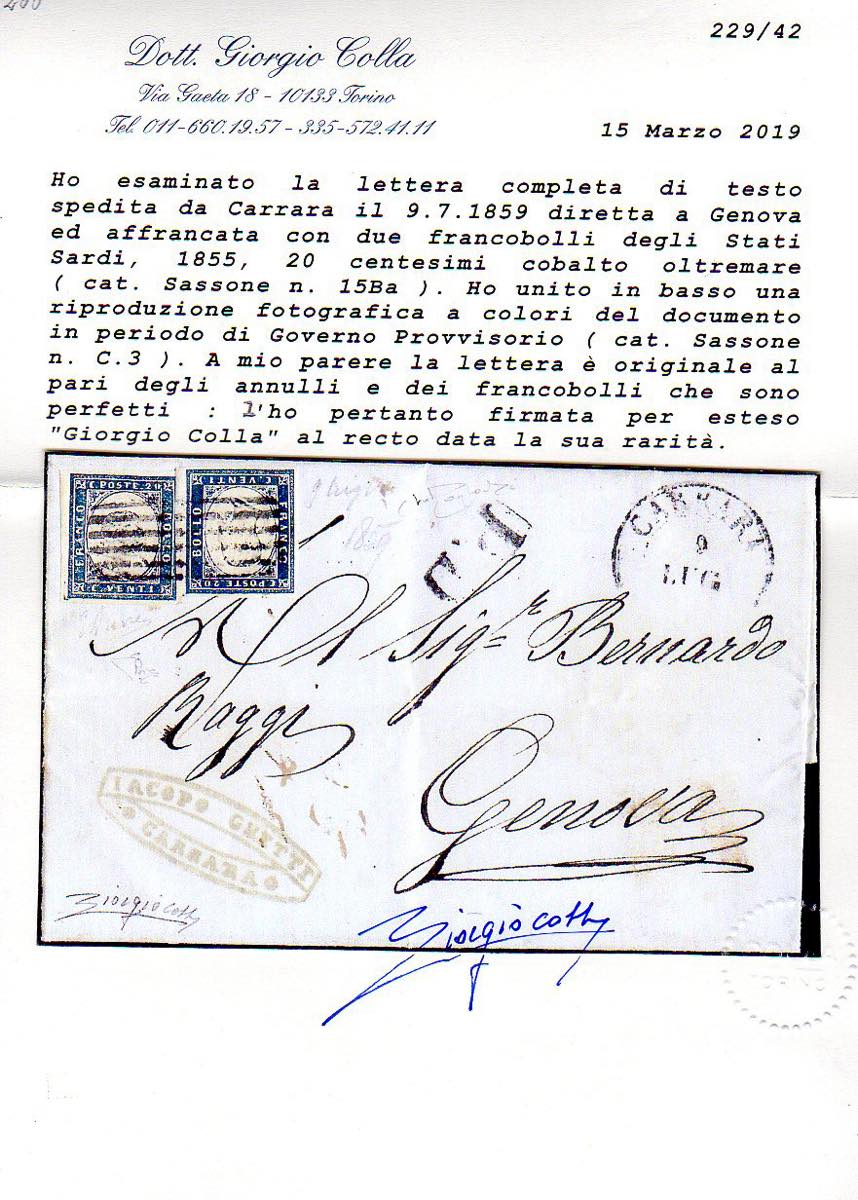 229/42
Dott. Giorgio Colla
Via Gaeta 18 - 10133 Torino
Tel. 011-660.19.57 - 335-572.41.11
15 Marzo 2019
Ho esaminato la lettera completa di testo
spedita da Carrara il 9.7.1859 diretta a Genova
ed affrancata con due francobolli degli Stati
Sardi, 1855, 20 centesimi cobalto oltremare
( cat. Sassone n. 15Ba ). Ho unito in basso una
riproduzione fotografica a colori del documento
in periodo di Governo Provvisorio ( cat. Sassone
n. C.3 ). A mio parere la lettera è originale al
pari degli annulli e dei francobolli che sono
perfetti : l'ho pertanto firmata per esteso
"Giorgio Colla" al recto data la sua rarità.
C. POSTE 20
FRANCO
BOLLO
C. VENTI
C. VENTI
BOLLO
FRANCO
C. POSTE 20
P.D.
CARRARA
9
LUG
1859
Al Sigre Bernardo
Raggi
Genova
IACOPO GHETTI
CARRARA
Giorgio Colla
Giorgio Colla
TORINO